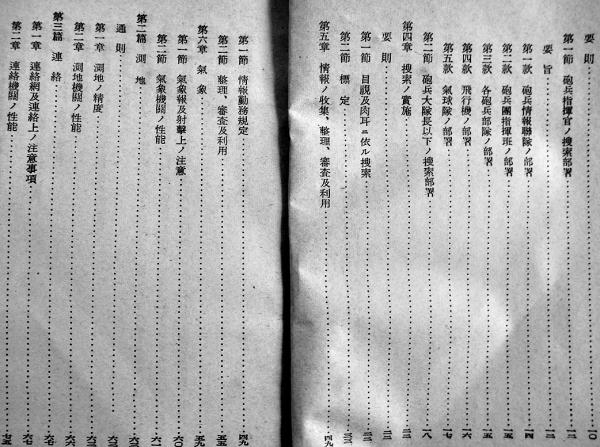 要則
第一節 砲兵指揮官ノ搜索部署
要旨
第一款 砲兵情報聯隊ノ部署
第二款 砲兵團指揮班ノ部署
第三款 各砲兵部隊ノ部署
第四款 飛行機ノ部署
第五款 氣球隊ノ部署
第二節 砲兵大隊長以下ノ搜索部署
第四章 搜索ノ實施
要則
第一節 目視及肉耳ニ依ル搜索
第二節 標定
第五章 情報ノ收集、整理、審査及利用 四九
第一節 情報勤務規定 四九
第二節 整理、審査及利用
第六章 氣象 五九
第一節 氣象報及射擊上ノ注意 六〇
第二節 氣象機關ノ性能 六一
第二篇 測地
通則
第一章 測地ノ精度
第二章 測地機關ノ性能
第三篇 連絡
第一章 連絡網及連絡上ノ注意事項
第二章 連絡機關ノ性能 七五